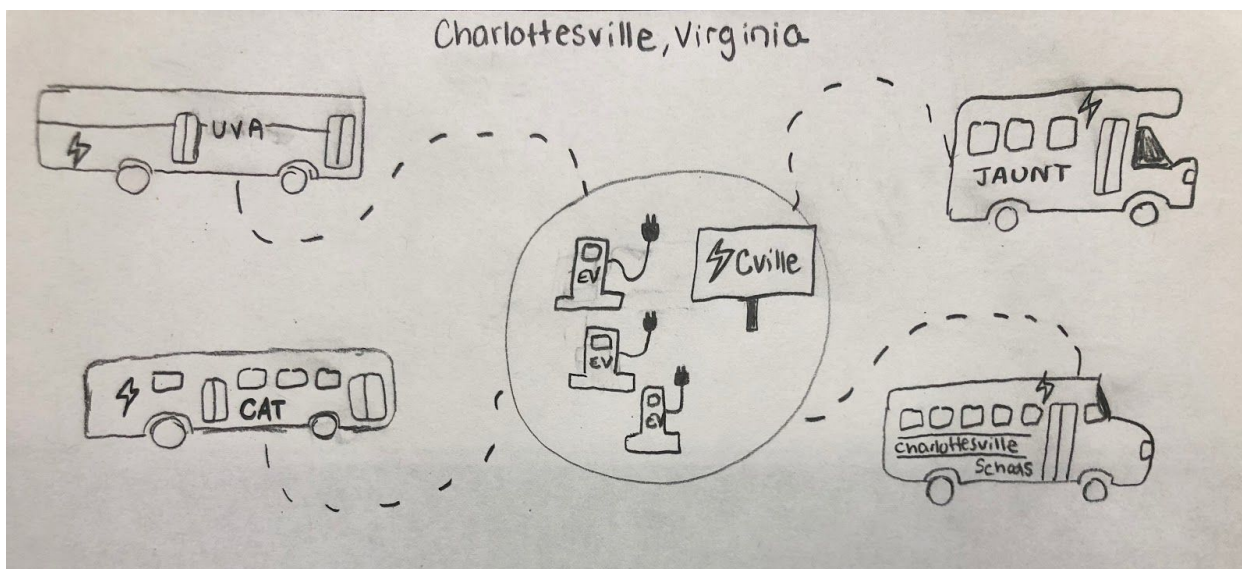 Charlottesville, Virginia
UVA
JAUNT
EV
Cville
EV
EV
CAT
Charlottesville
Schools